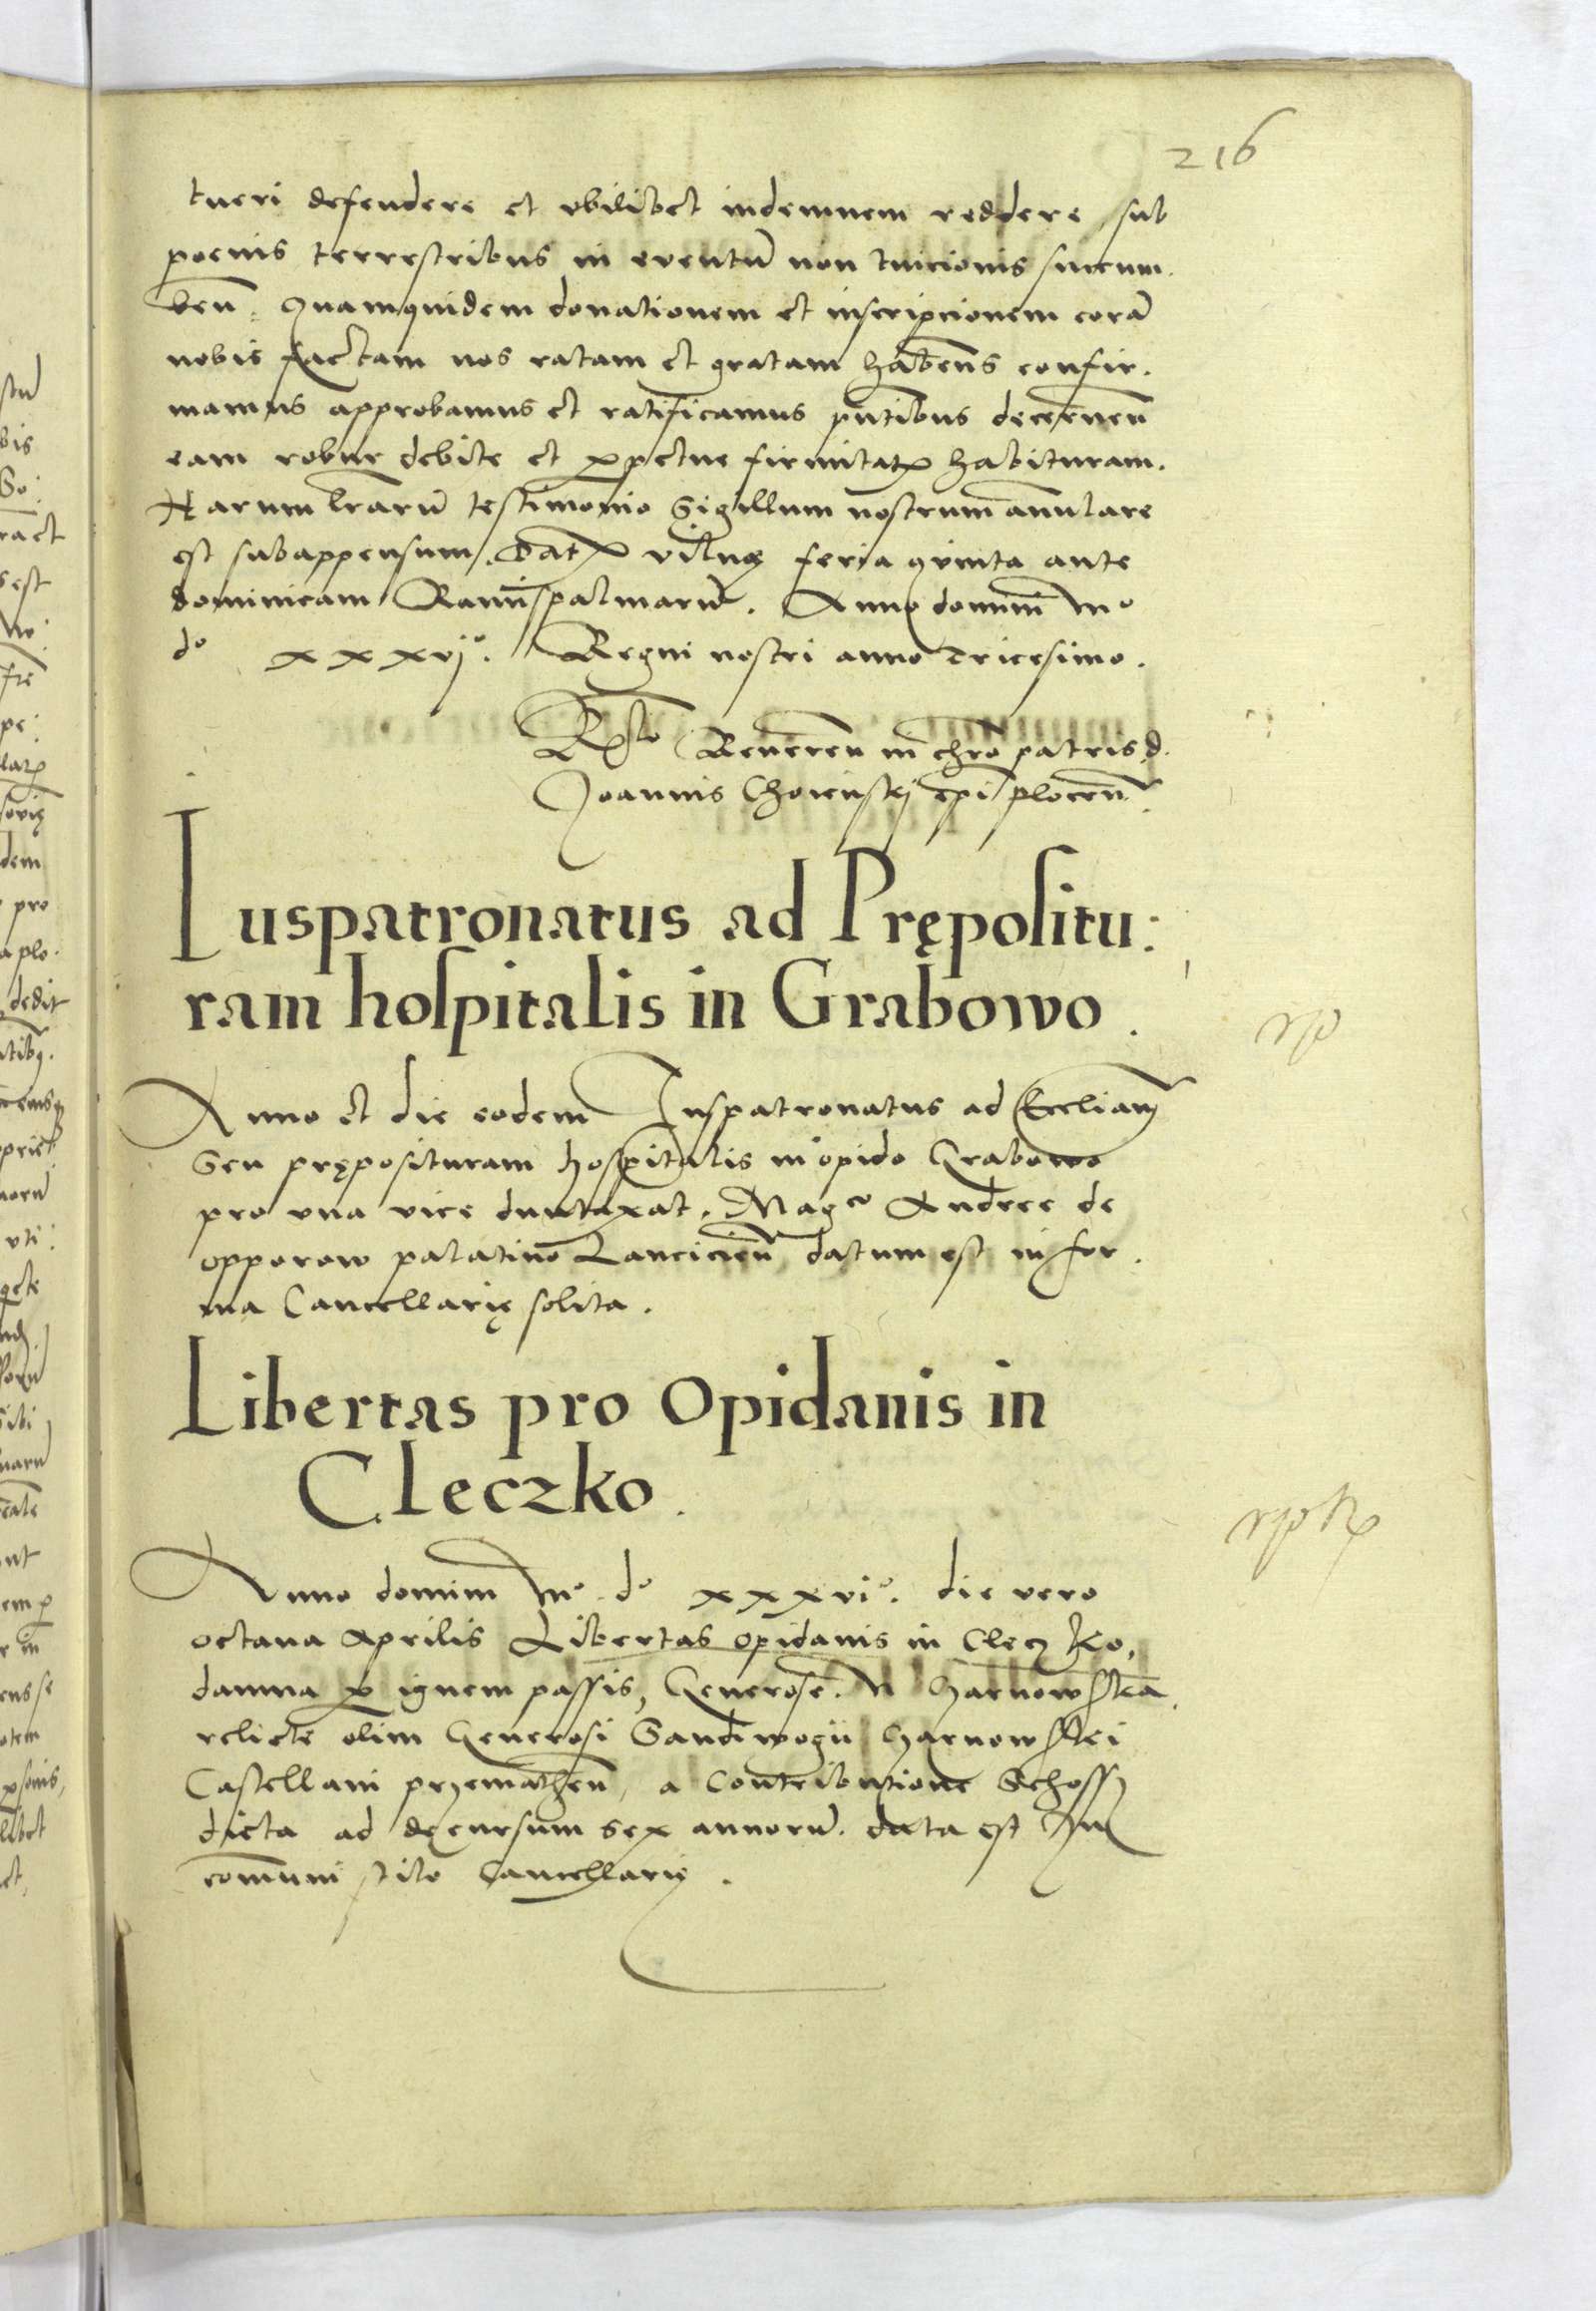 216
tueri defendere et vbilibet indemnem reddere sub
poenis terrestribus in euentū non tuicionis succum
ben̄. Quamquidem donationem et inscripcionem corā
nobis factam nos ratam et gratam haben̄s confir
mamus approbamus et ratificamus pn̄tibus decernen̄
eam robur debite et ꝑpetue firmitatꝭ habituram.
Harum lr̄arū testimonio Sigillum nostrum annulare
est subappensum. Datꝭ vilnę feria quinta ante
dominicam Ramispalmarū. Anno domini mº
dº xxxvjº. Regni nostri anno Tricesimo.
Rlo Reueren̄ in chrō patris d.
Joannis Choienskj epī plocen̄.
Iuspatronatus ad Prępositu:
ram hospitalis in Grabowo.
Anno et die eodem Juspatronatus ad Eccliam
Seu pręposituram hospitalis in opido Grabowo
pro vna vice duntaxat. Magco Andree de
opporow palatino Lancicien̄ datum est in for
ma Cancellarię solita.
Libertas pro Opidanis in
Cleczko.
Anno domini mº. dº xxxviº. die vero
octaua Aprilis Libertas opidanis in Cleczko,
damna ꝑ ignem passis, Generose. N Czarnowska
relicte olim Generosi Sandiwogii Czarnowskei
Castellani przemathen̄, a Contributione Schossz
dicta ad decursum sex annorū. data est In
comuni stilo Cancellarię.